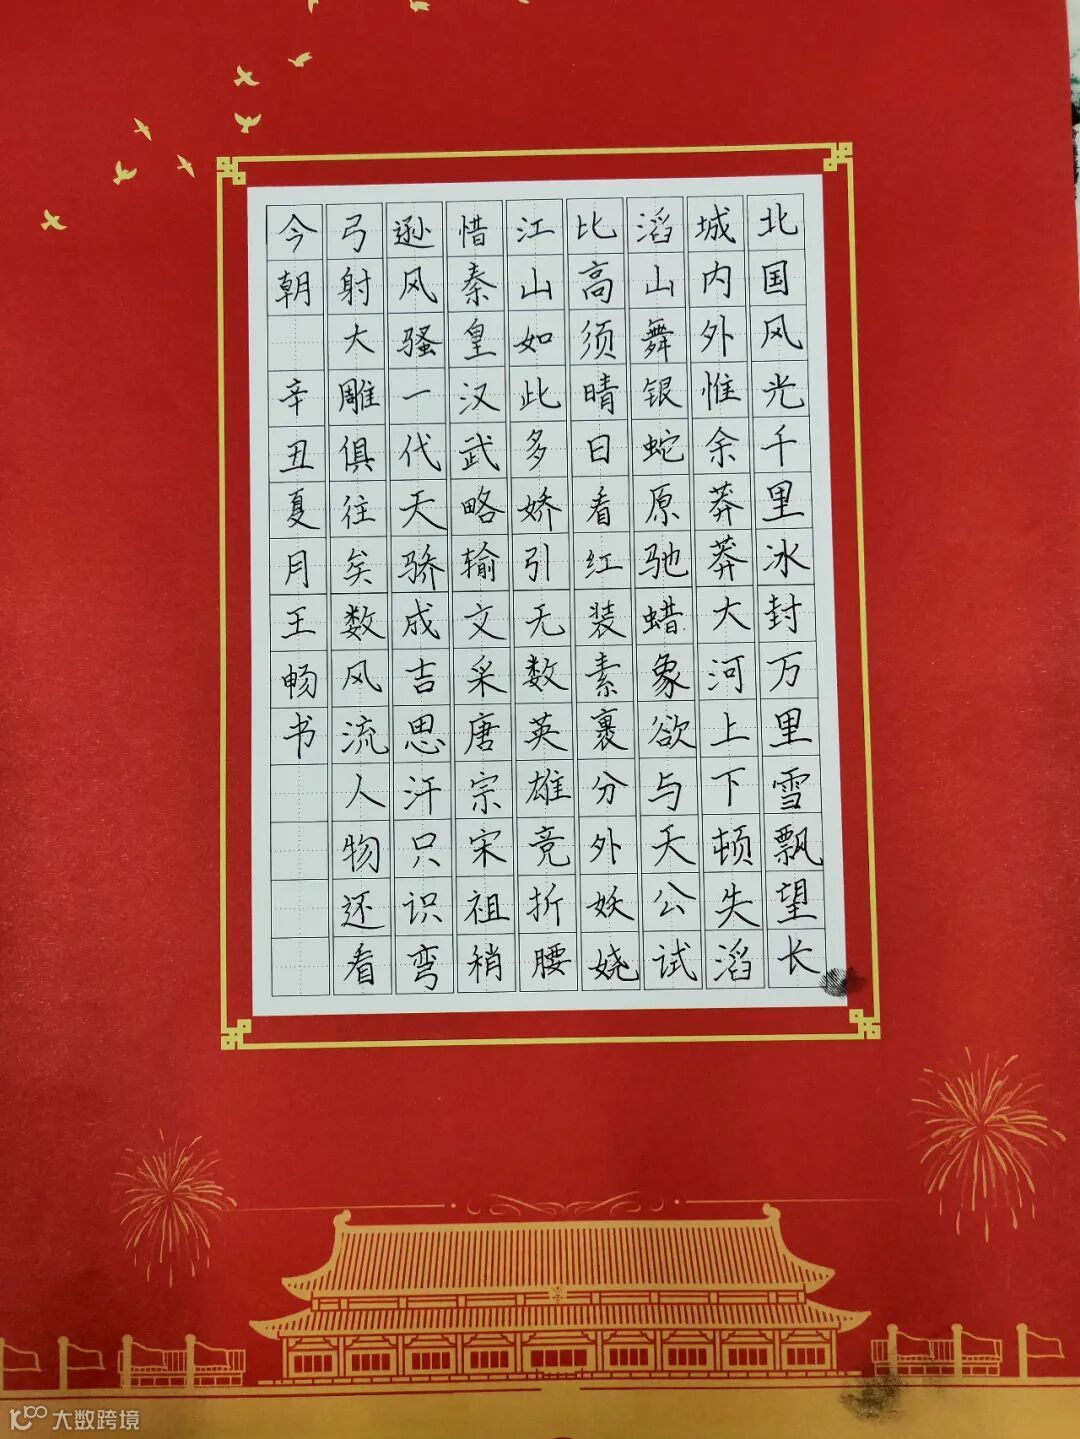 北国风光千里冰封万里雪飘望长
城内外惟余莽莽大河上下顿失滔
滔山舞银蛇原驰蜡象欲与天公试
比高须晴日看红装素裹分外妖娆
江山如此多娇引无数英雄竞折腰
惜秦皇汉武略输文采唐宗宋祖稍
逊风骚一代天骄成吉思汗只识弯
弓射大雕俱往矣数风流人物还看
今朝 辛丑夏月王畅书
大数跨境